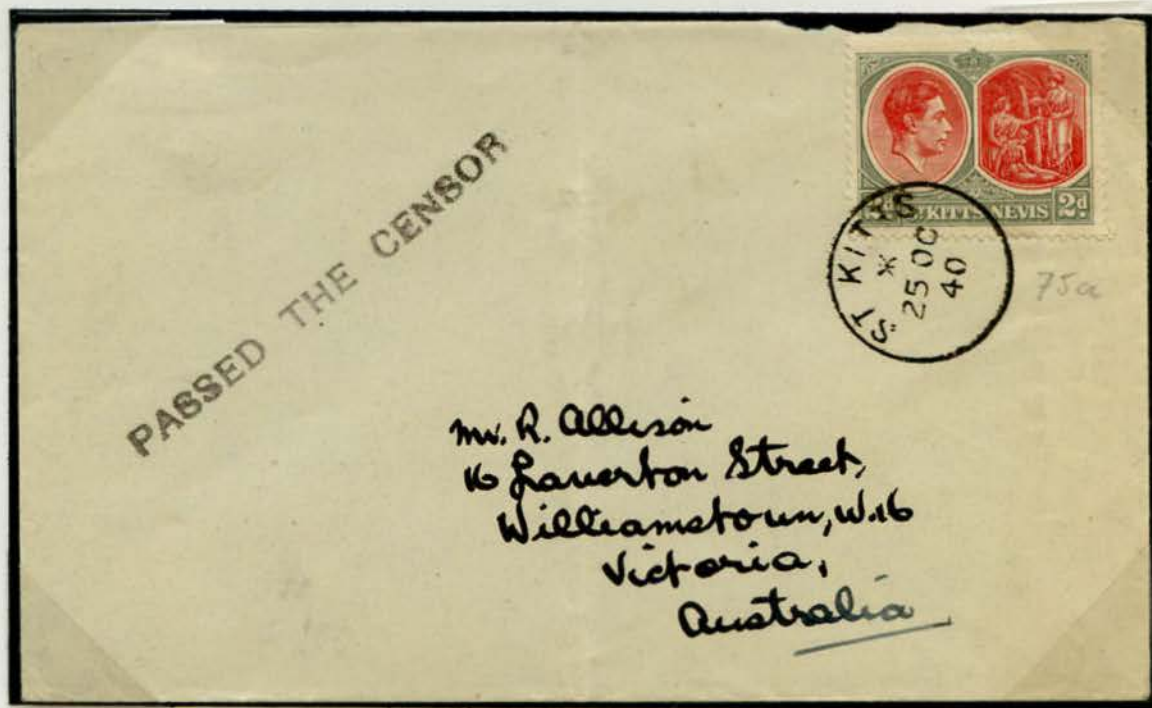 PASSED THE CENSOR
ST. KITTS-NEVIS 2d
ST KITTS
25 OC
40
75a
Mr. R. Allison
16 Laverton Street,
Williamstown, W.16
Victoria,
Australia